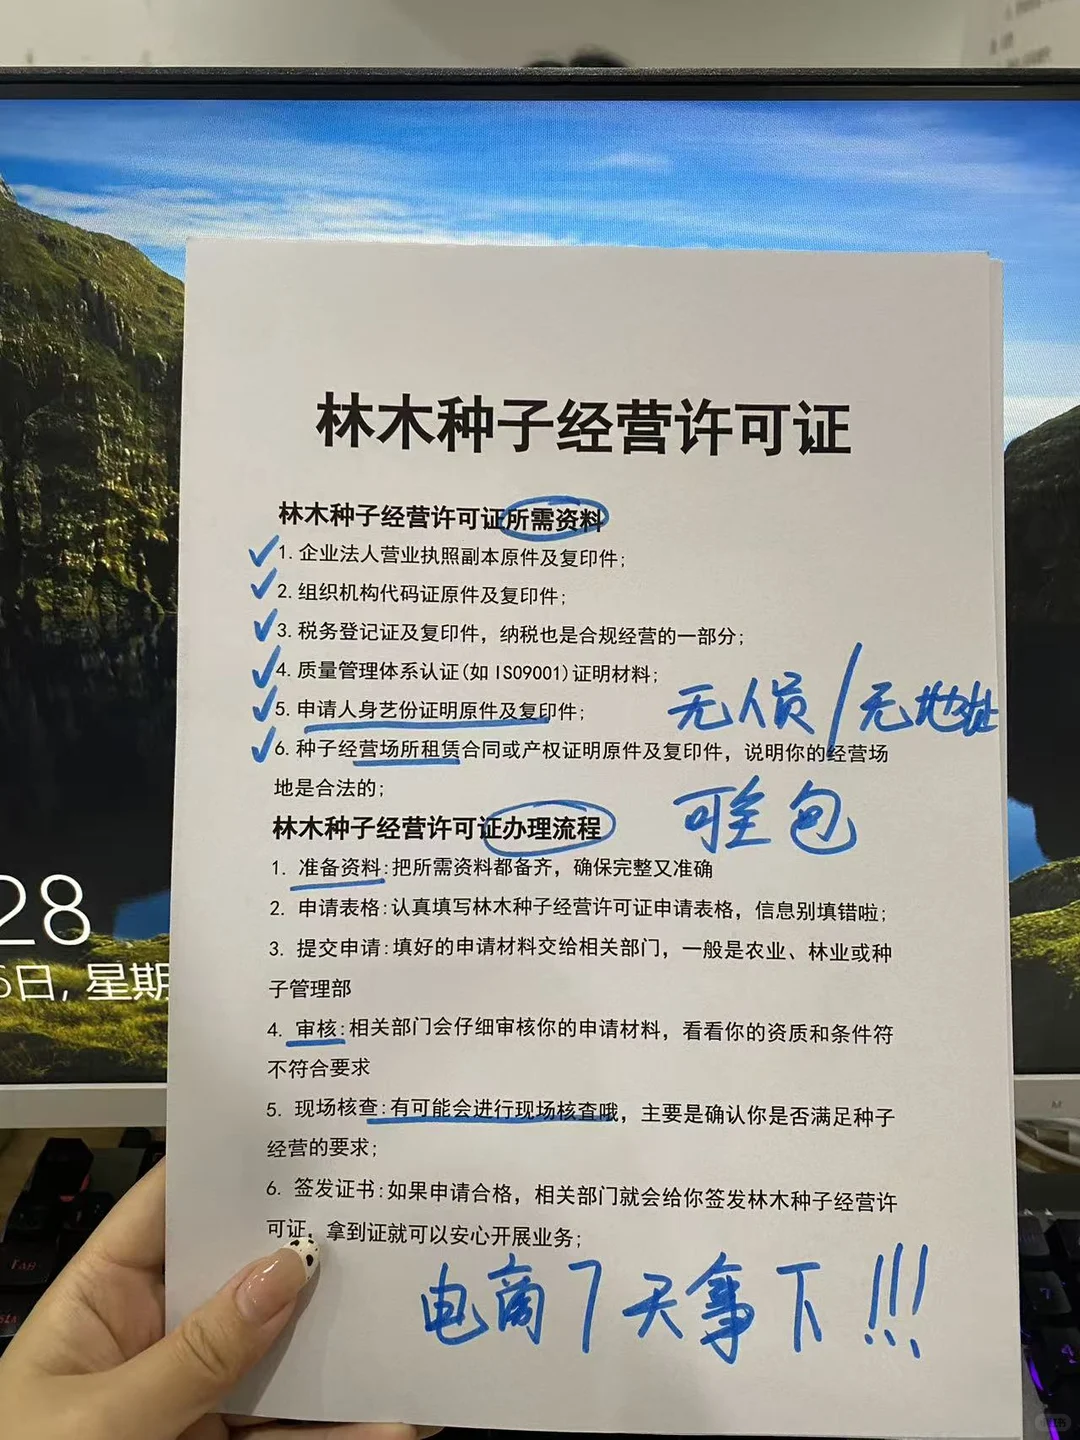 林木种子经营许可证
林木种子经营许可证所需资料
1. 企业法人营业执照副本原件及复印件;
2. 组织机构代码证原件及复印件;
3. 税务登记证及复印件, 纳税也是合规经营的一部分;
4. 质量管理体系认证(如ISO9001)证明材料;
5. 申请人身艺份证明原件及复印件;
无人员/无地址
6. 种子经营场所租赁合同或产权证明原件及复印件, 说明你的经营场
地是合法的;
可全包
林木种子经营许可证办理流程
1. 准备资料:把所需资料都备齐, 确保完整又准确
2. 申请表格:认真填写林木种子经营许可证申请表格, 信息别填错啦;
3. 提交申请:填好的申请材料交给相关部门, 一般是农业、林业或种
子管理部
4. 审核:相关部门会仔细审核你的申请材料, 看看你的资质和条件符
不符合要求
5. 现场核查:有可能会进行现场核查哦, 主要是确认你是否满足种子
经营的要求;
6. 签发证书:如果申请合格, 相关部门就会给你签发林木种子经营许
可证, 拿到证就可以安心开展业务;
电商7天拿下!!!
28
6日, 星期